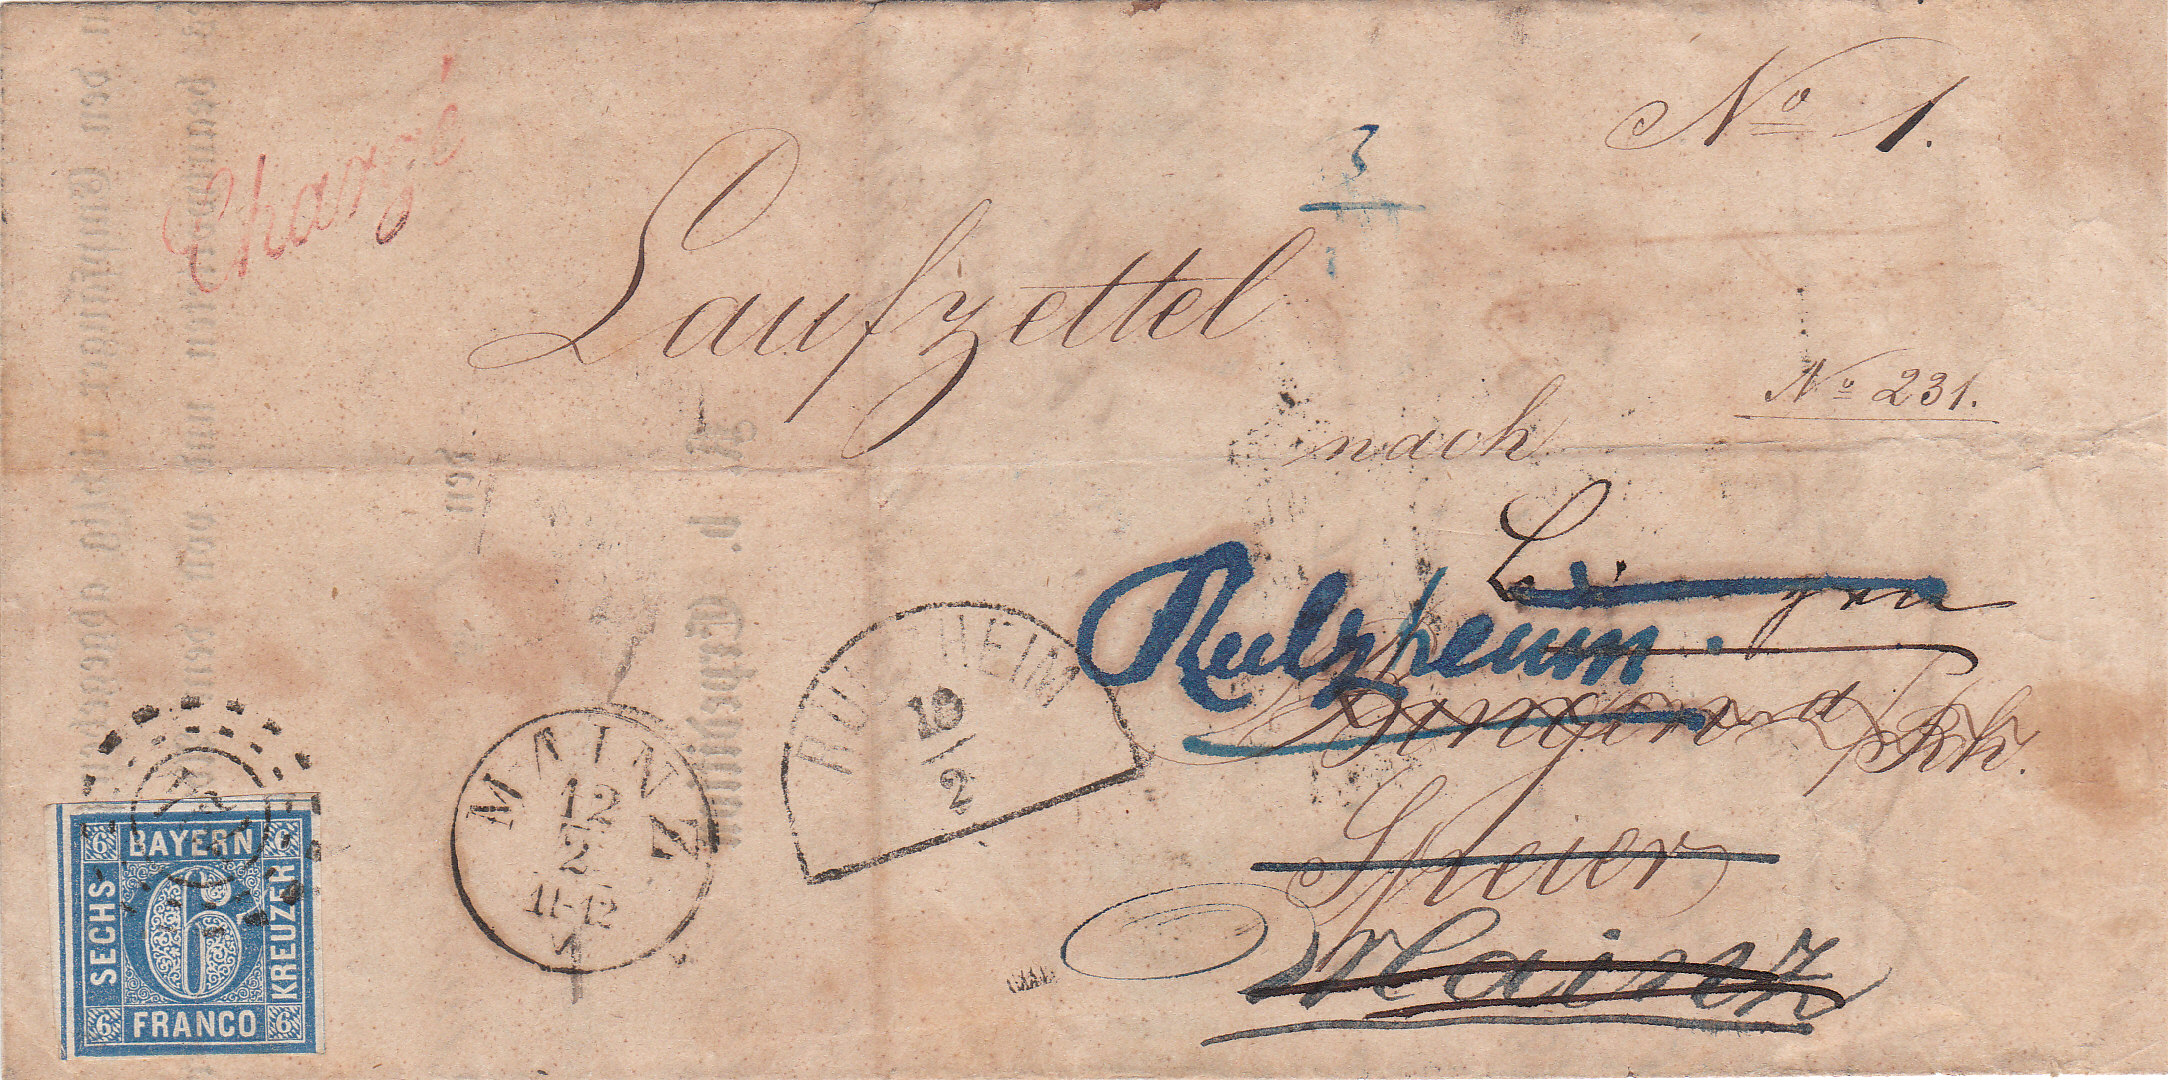 Nº 1.
Chargé
3
Laufzettel
Nº 231.
nach
Rulzheim.
Bingen a/Rh.
Speier
Mainz
RULZHEIM
10
2
MAINZ
12
2
11-12
BAYERN
SECHS
KREUZER
FRANCO
6
6
6
6
6